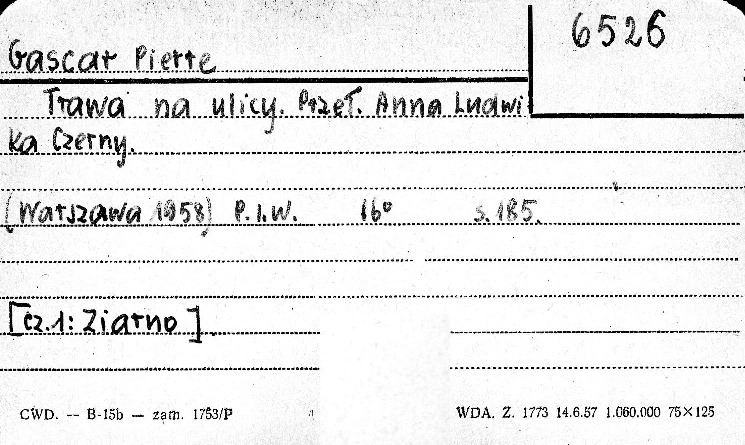 6526
Gascar Pierre
Trawa na ulicy. Przeł. Anna Ludwi
ka Czerny.
(Warszawa 1958) P.I.W. 16° s. 185.
[Cz.1: Ziarno]
CWD. — B-15b — zam. 1753/P
WDA. Z. 1773 14.6.57 1.060.000 75×125